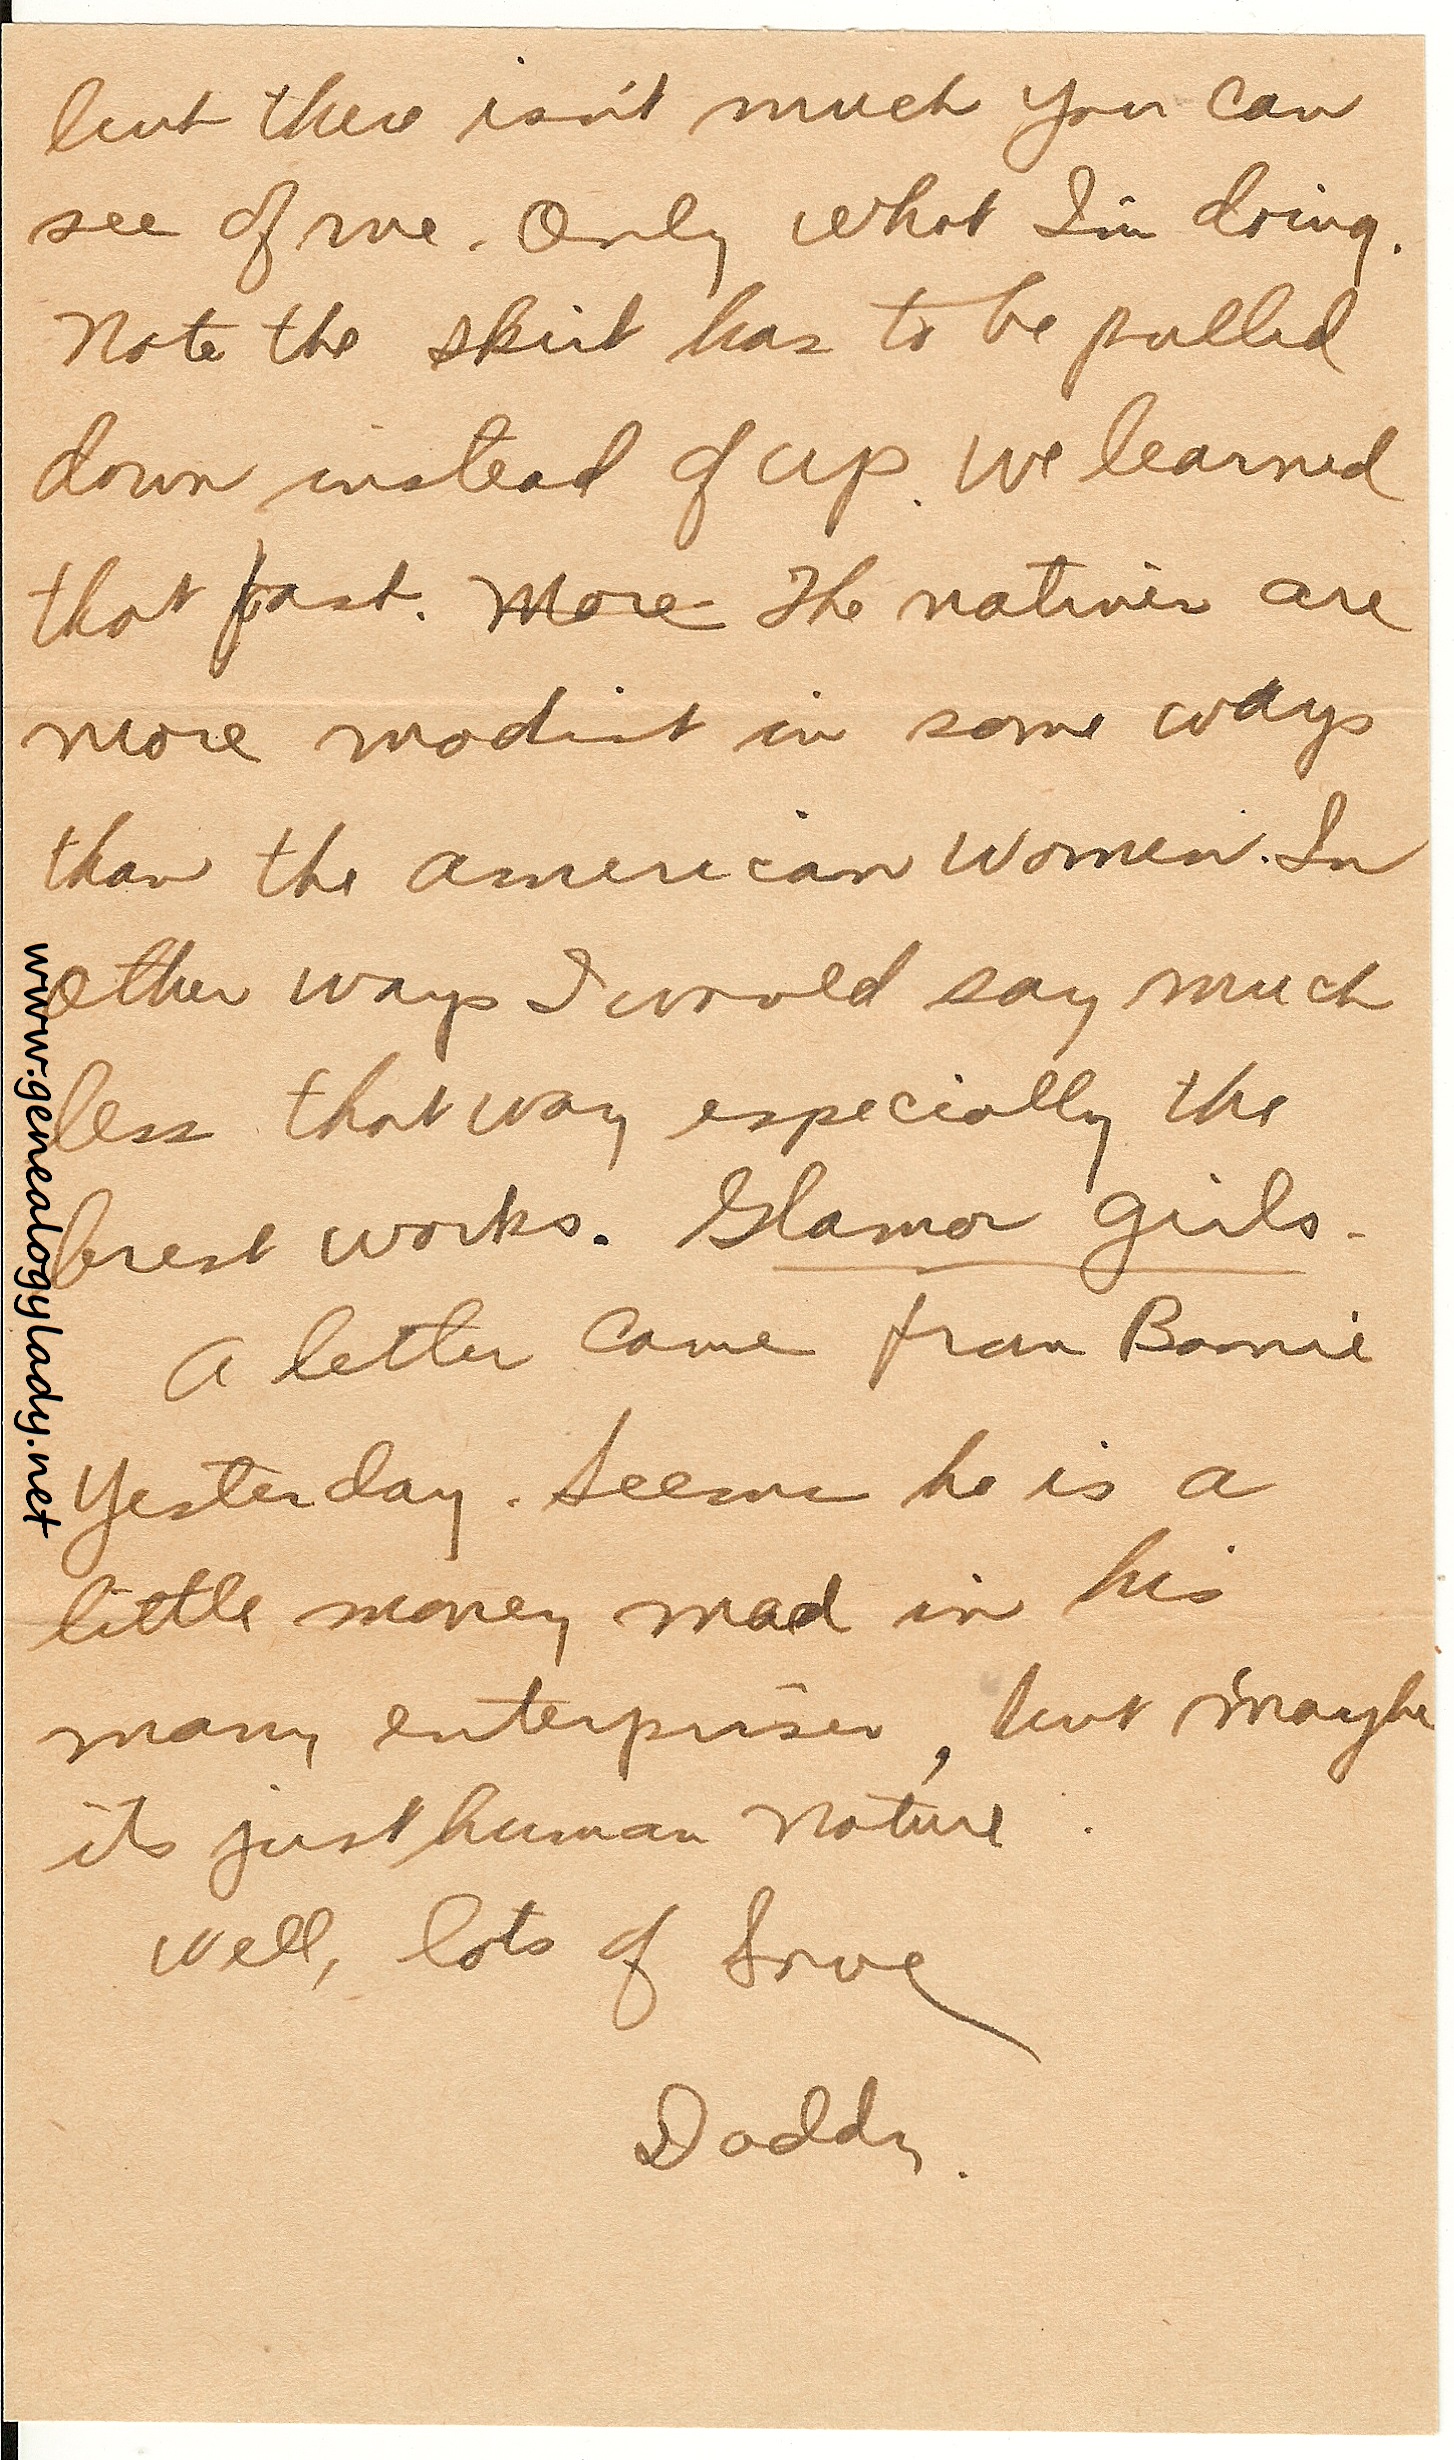 but there isn't much you can
see of me. Only what I'm doing.
Note the skirt has to be pulled
down instead of up. We learned
that fast. More The natives are
more modist in some ways
than the american women. In
other ways I would say much
less that way especially the
brest works. Glamor girls.
A letter came from Boonie
Yesterday. Seems he is a
little money mad in his
many enterprises, but maybe
its just human nature.
Well, lots of Love
Daddy.
www.genealogylady.net